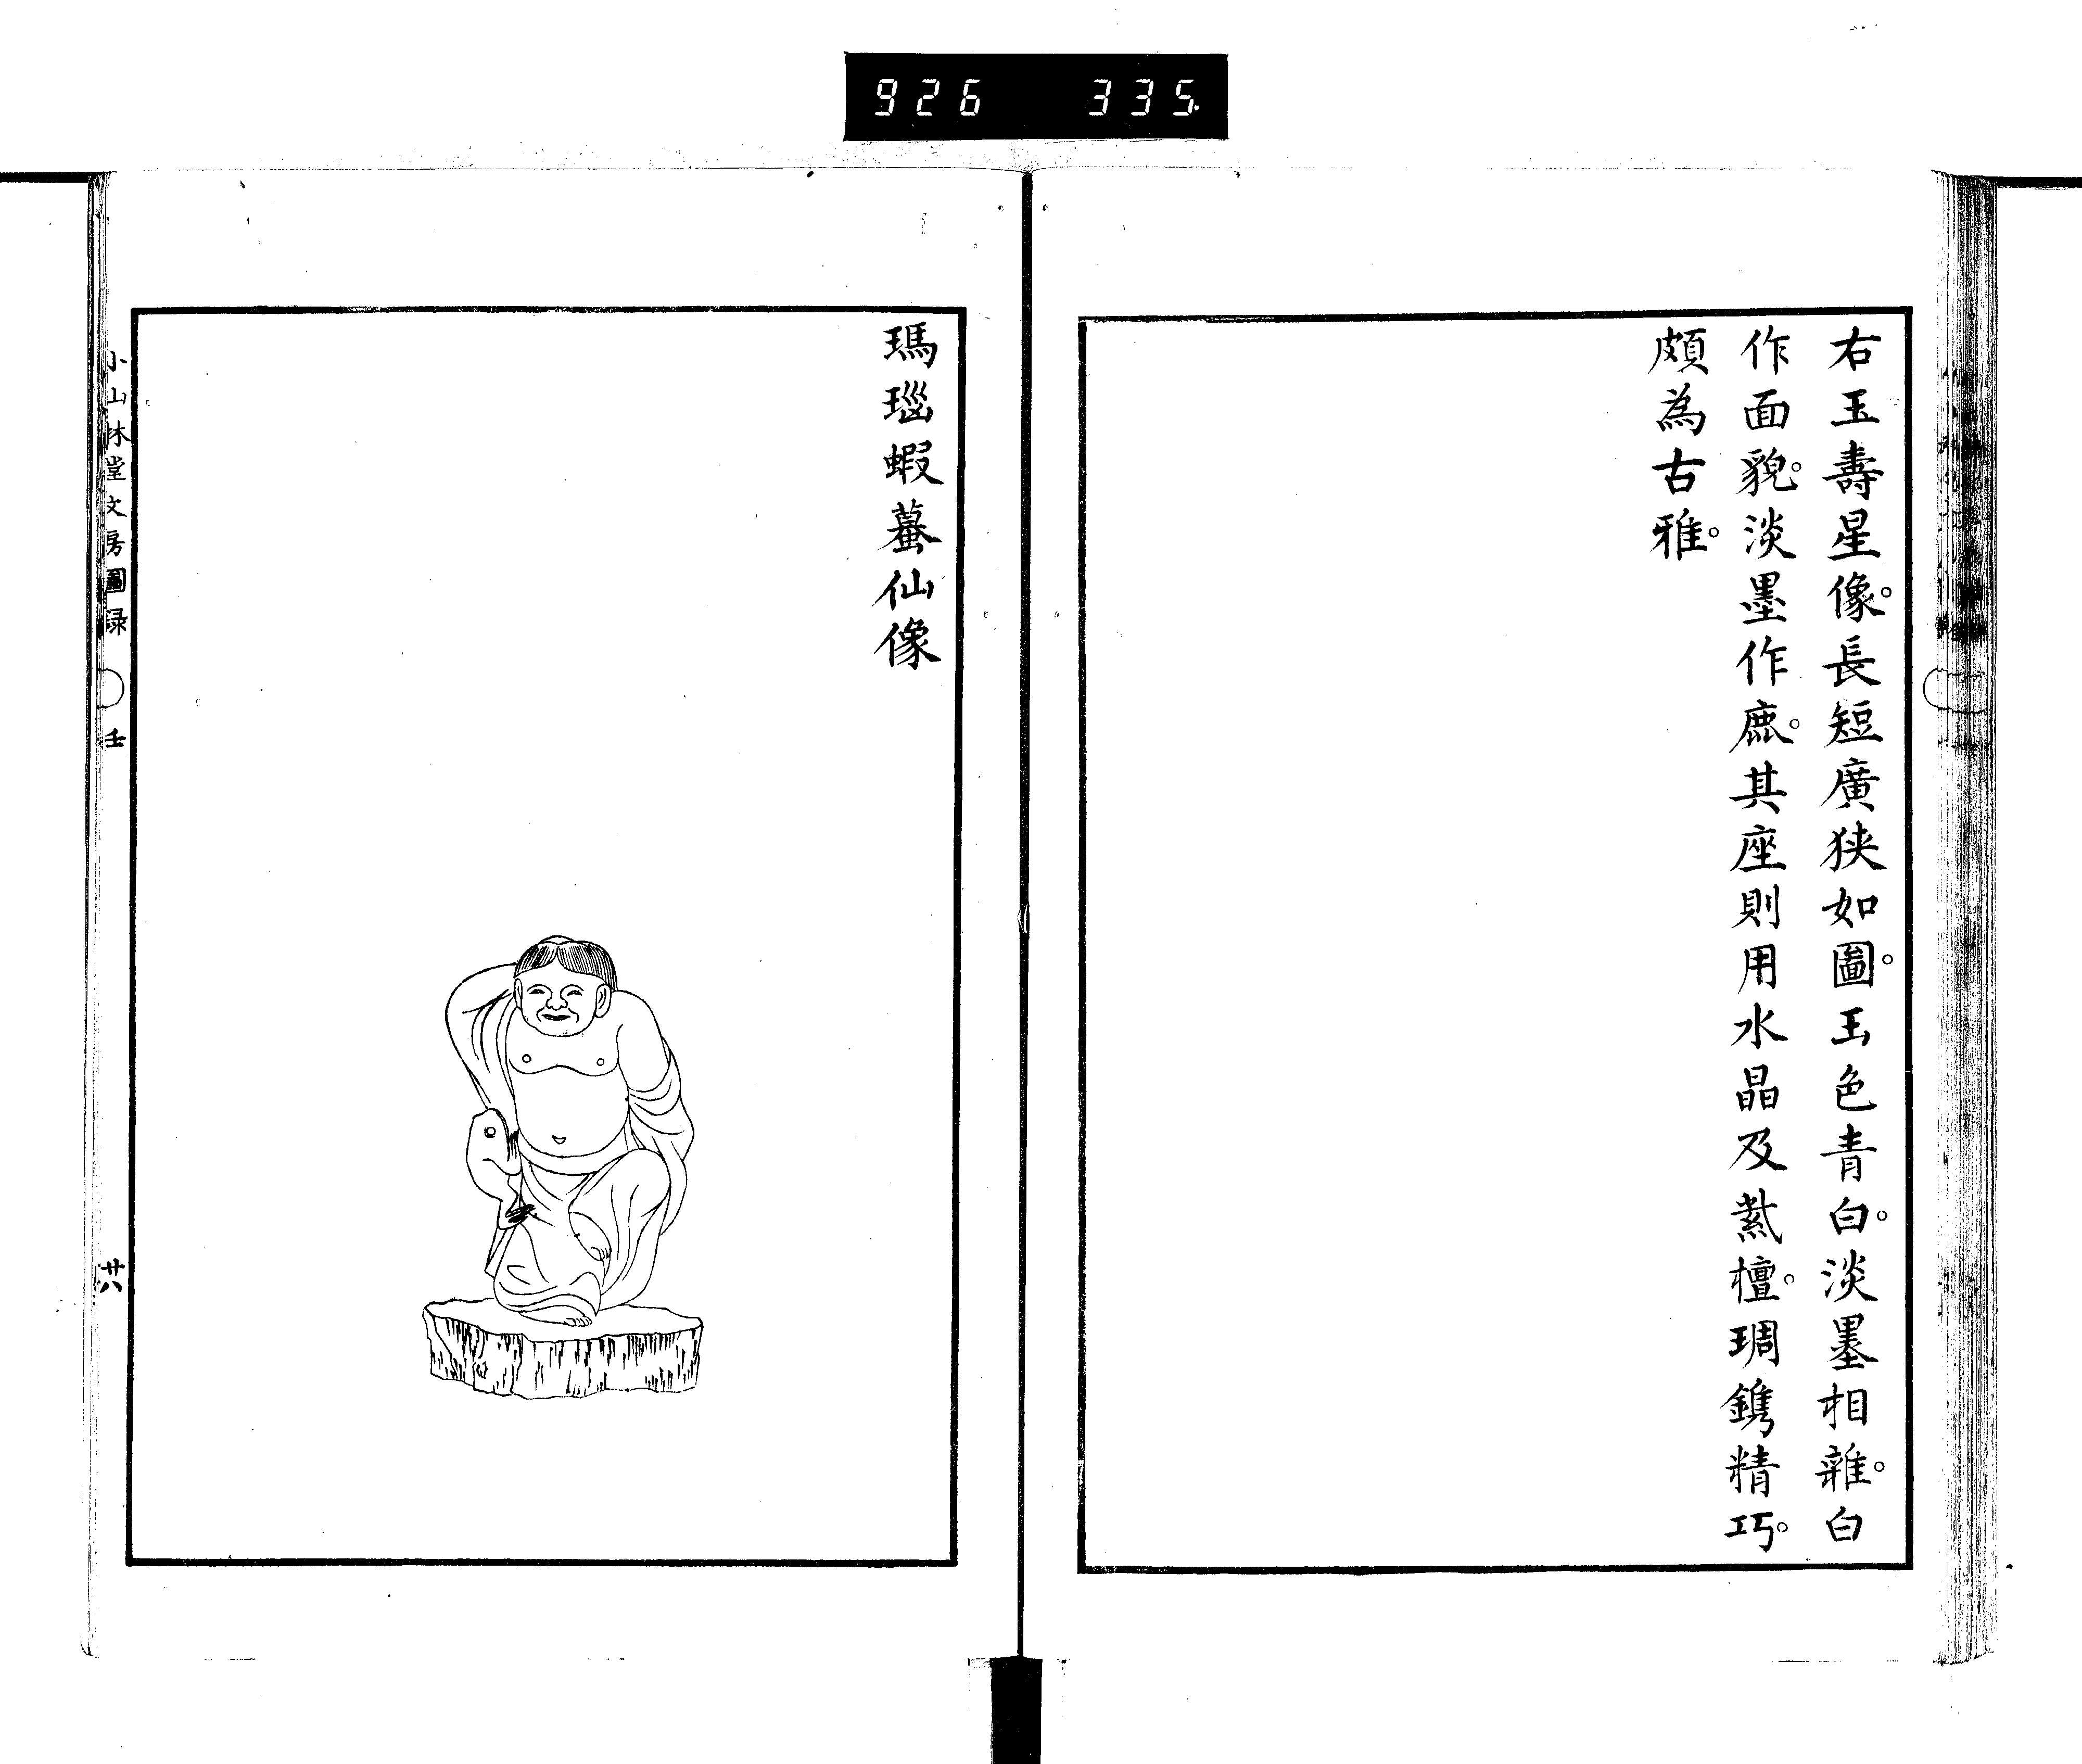 926 335
右玉壽星像。長短廣狭如圖。玉色青白。淡墨相雜。白
作面貌。淡墨作鹿。其座則用水晶及紫檀。琱鐫精巧。
頗為古雅。
瑪瑙蝦蟇仙像
小山林堂文房圖録 壬 廿八